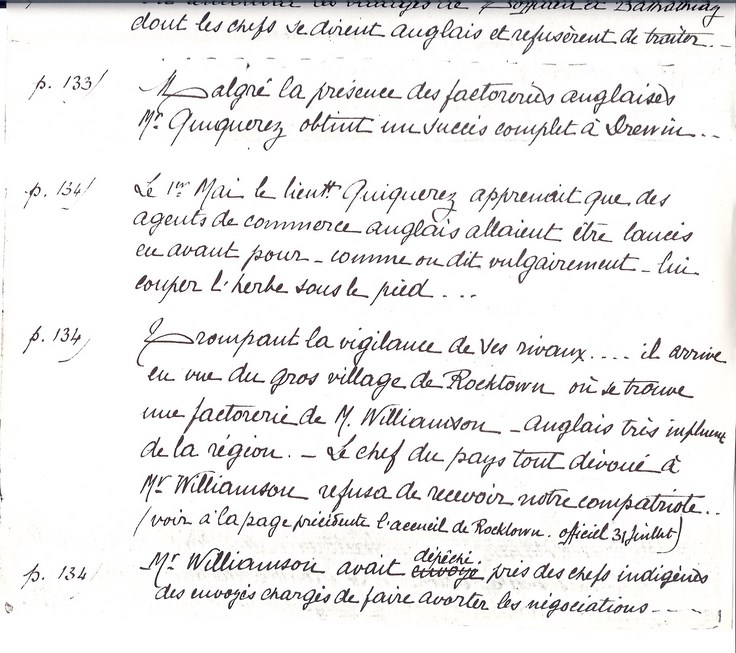 les villages de
dont les chefs se dirent anglais et refusèrent de traiter. –
p. 133/ Malgré la présence des factoreries anglaises
Mr. Quiquerez obtint un succès complet à Drewin...
p. 134/ Le 1er Mai le lieutt Quiquerez apprenait que des
agents de commerce anglais allaient être lancés
en avant pour – comme on dit vulgairement – lui
couper l'herbe sous le pied...
p. 134/ Trompant la vigilance de ses rivaux.... il arrive
en vue du gros village de Rocktown où se trouve
une factorerie de M. Williamson – anglais très influent
de la région. – Le chef du pays tout dévoué à
Mr Williamson refusa de recevoir notre compatriote..
(voir à la page précédente l'accueil de Rocktown. officiel 31 Juillet)
p. 134/ Mr. Williamson avait envoyé dépêché près des chefs indigènes
des envoyés chargés de faire avorter les négociations – – –